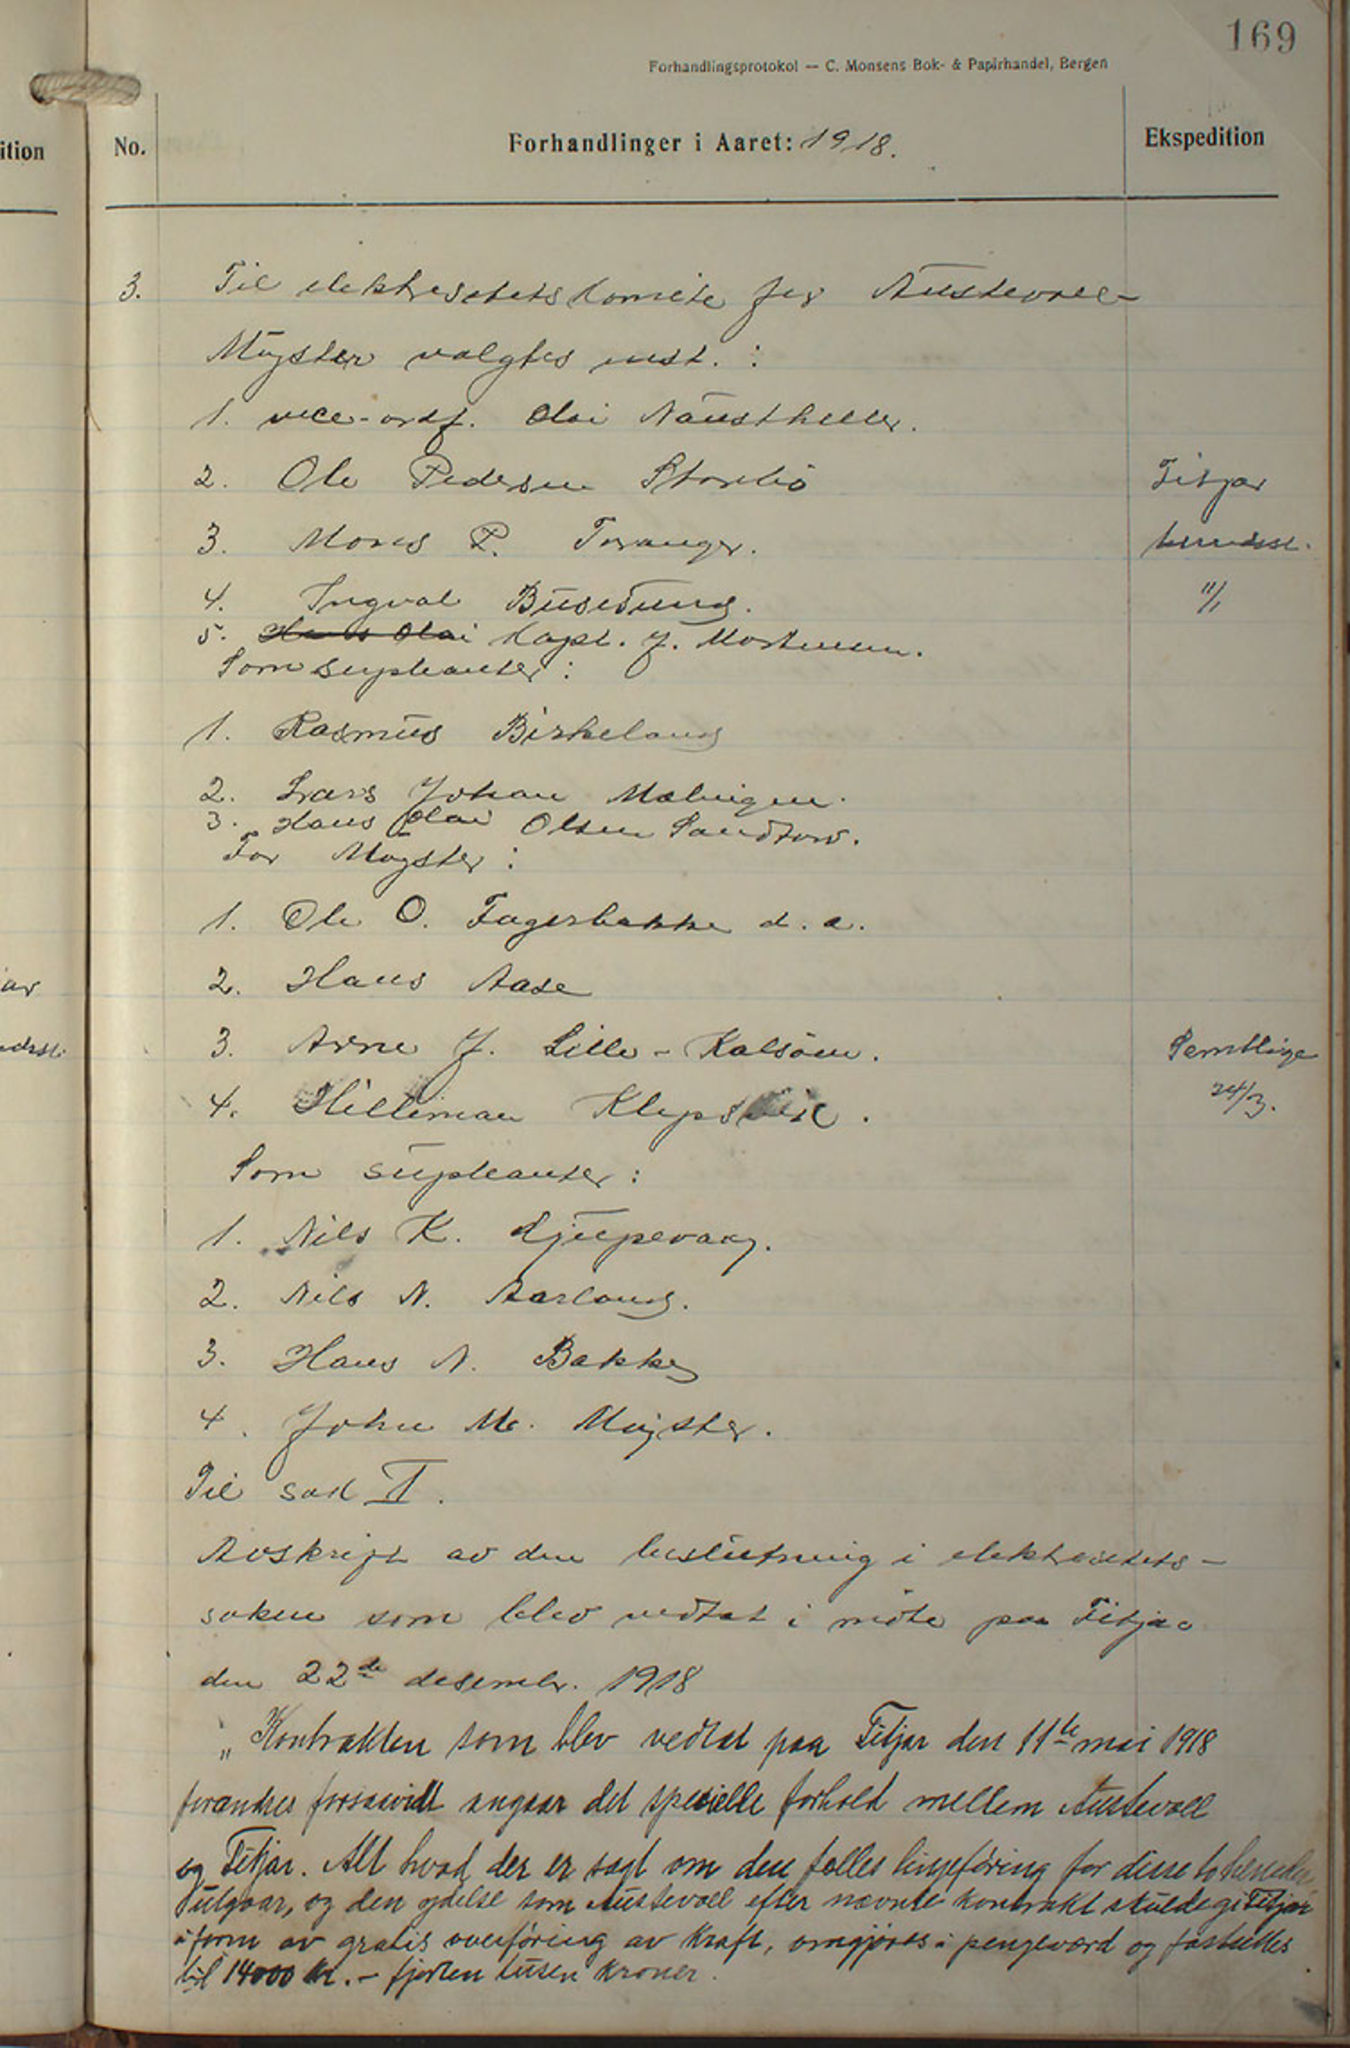 169
Forhandlingsprotokol — C. Monsens Bok- & Papirhandel, Bergen
ition
No.
Forhandlinger i Aaret: 1918.
Ekspedition
3.
Til elektresitetskomite for Austevoll-
Møgster valgtes enst. :
1. vice-ordf. Olai Naustheller.
2. Ole Pedersen Storebø
Fitjar
3. Mons P. Toranger.
herredsst.
4. Ingval Busesund.
11/1
5. Hans Olai Kapt. J. Mortensen.
Som supleanter :
1. Rasmus Birkeland
2. Lars Johan Mælingen.
3. Hans Olai Olsen Sandtorv.
For Møgster :
1. Ole O. Fagerbakke d. a.
2. Hans Aase
ar
3. Arne J. Lille-Kalsøen.
Samtlige
edsst.
4. Hilleman Klepsvik.
24/3.
Som supleanter :
1. Nils K. Djupevaag.
2. Nils N. Aarland.
3. Hans N. Bakke
4. John M. Møgster.
Til sak II.
Avskrift av den beslutning i elektresitets-
saken som blev vedtat i møte paa Fitjar
den 22de desembr. 1918
„Kontrakten som blev vedtat paa Fitjar den 11te mai 1918
forandres forsaavidt angaar det spesielle forhold mellem Austevoll
og Fitjar. Alt hvad der er sagt om den fælles linjeføring for disse to herreder
utgaar, og den ydelse som Austevoll efter nævnte kontrakt skulde gi Fitjar
i form av gratis overføring av kraft, omgjøres i pengeværd og fastsættes
til 14000 kr. - fjorten tusen kroner.